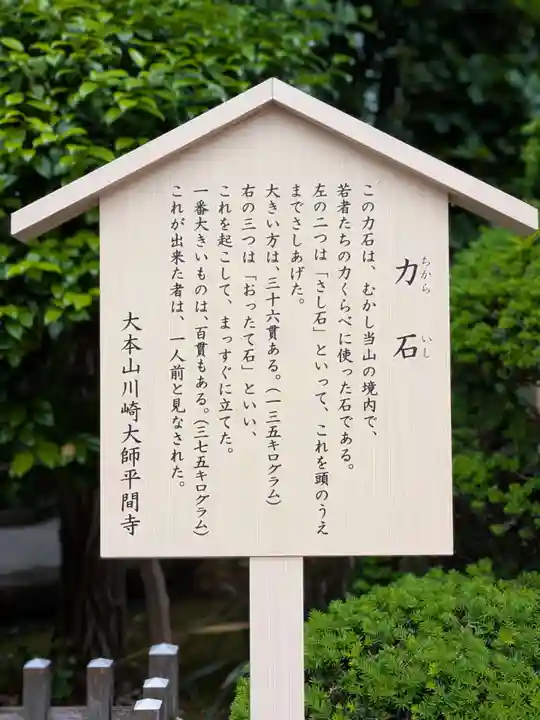 力石
ちから いし
この力石は、むかし当山の境内で、
若者たちの力くらべに使った石である。
左の二つは「さし石」といって、これを頭のうえ
までさしあげた。
大きい方は、三十六貫ある。(一三五キログラム)
右の三つは「おったて石」といい、
これを起こして、まっすぐに立てた。
一番大きいものは、百貫もある。(三七五キログラム)
これが出来た者は、一人前と見なされた。
大本山川崎大師平間寺